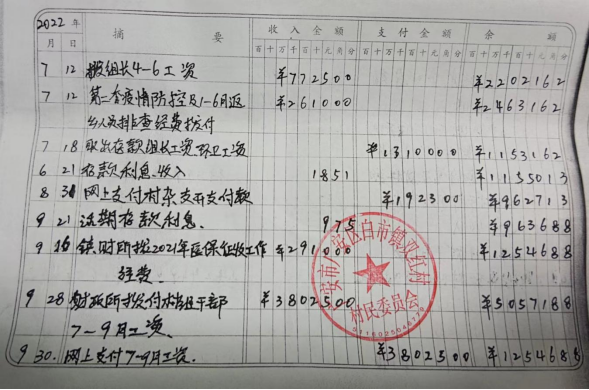 2022年 摘 要 收入金额 支付金额 余 额
月 日 百十万千百十元角分 百十万千百十元角分 百十万千百十元角分
7 12 拨组长4-6工资 ¥772500 ¥2202162
7 12 第二季疫情防控及1-6月返 ¥261000 ¥2463162
乡人员排查经费拨付
7 18 取出存款组长工资环卫工资 ¥1310000 ¥1153162
6 21 存款利息收入 1851 ¥1155013
8 31 网上支付村杂支开支付款 ¥192300 ¥962713
9 21 活期存款利息 975 ¥963688
9 16 镇财所拨2021年医保征收工作 ¥291000 ¥1254688
经费
9 28 财政所拨付村组干部 ¥3802500 ¥5057188
7-9月工资
9 30. 网上支付7-9月工资. ¥3802500 ¥1254688
广安市广安区白市镇双红村
村民委员会